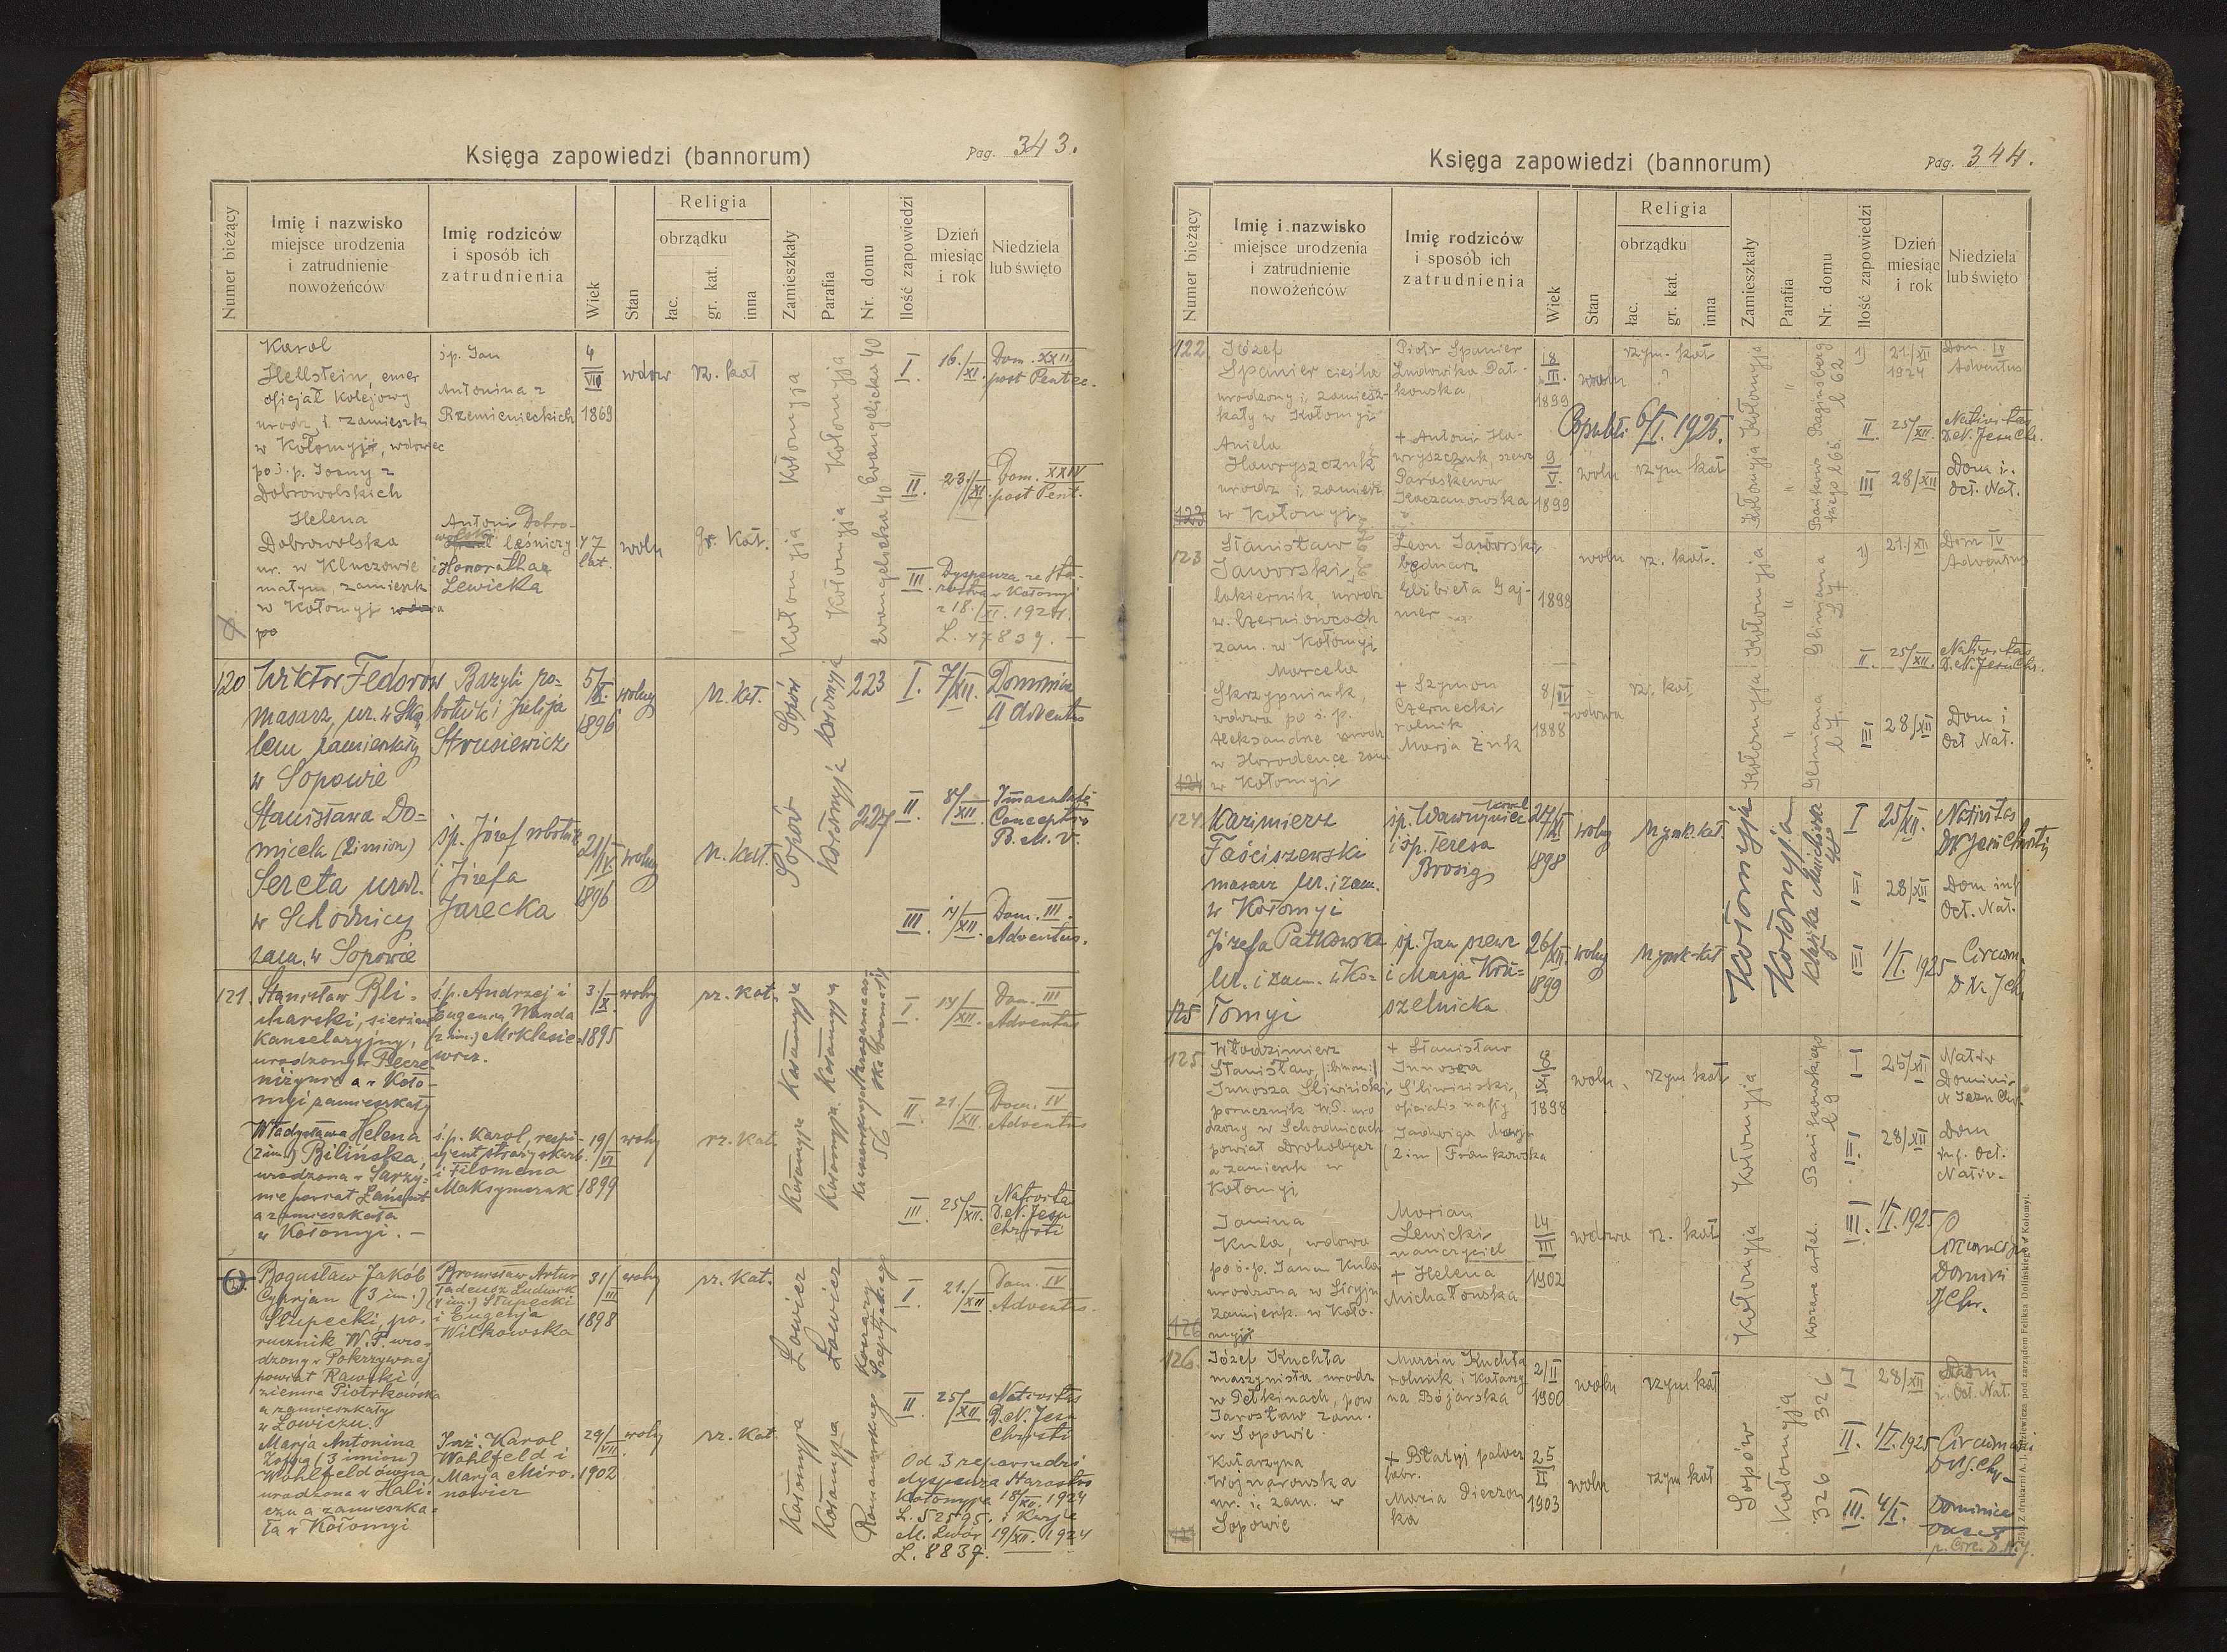 Księga zapowiedzi (bannorum)
Pag. 343.
Numer bieżący
Imię i nazwisko
miejsce urodzenia
i zatrudnienie
nowożeńców
Imię rodziców
i sposób ich
zatrudnienia
Wiek
Stan
Religia
obrządku
łac.
gr. kat.
inna
Zamieszkały
Parafia
Nr. domu
Ilość zapowiedzi
Dzień
miesiąc
i rok
Niedziela
lub święto
Karol
Hellstein, emer
oficjał Kolejowy
urodz. i zamieszk
w Kołomyji, wdowiec
po ś.p. Joanny z
Dobrowolskich
śp. Jan
Antonina z
Rzemienieckich
4
VII
1869
wdow
rz. kat
Kołomyja
Kołomyja
Ewangelicka 40
I.
16./XI.
Dom. XXIII
post Pentec.
II.
23./XI.
Dom. XXIV
post Pent.
Helena
Dobrowolska
ur. w Kluczowie
małym, zamieszk
w Kołomyj
po
Antoni Dobro-
wolski leśniczy
i Honoratha
Lewicka
47
lat.
woln
Gr. Kat.
Kołomyja
Kołomyja
Ewangelicka 40
III
Dyspenza ze sta-
rostwa w Kołomyi
z 18./XI. 1924.
L. 47839. —
120
Wiktor Fedorów
masarz, ur. w Ska
łem zamieszkały
w Sopowie
Bazyli ro-
botnik i Julija
Strusiewicz
5/
1896
wolny
rz. kat.
Sopów
Kołomyja
223
I.
7/XII.
Dominica
II Adventus
Stanisława Do-
micela (2 imion)
Sereta urodz.
w Schodnicy
zam. w Sopowie
śp. Józef robotnik
i Józefa
Jarecka
21/IV
1896
wolny
rz. kat.
Sopów
Kołomyja
227
II.
8/XII.
Imaculatae
Conceptio
B. M. V.
III.
14/XII.
Dom. III.
Adventus.
121.
Stanisław Bli-
charski, sierżant
kancelaryjny,
urodzony w Pecze
niżynie a w Koło-
myi zamieszkały
ś.p. Andrzej i
Eugenia Wanda
(2 im.) Miklasie-
wicz.
3./X.
1895
wolny
rz. kat.
Kołomyja
Kołomyja
I.
14/XII.
Dom. III
Adventus
II.
21./XII
Dom. IV
Adventus
Władysława Helena
(2 im.) Bilińska,
urodzona w Sarzy-
nie powiat Łańcut
a zamieszkała
w Kołomyi. —
ś.p. Karol, respi-
cjent straży skarb.
i Filomena
Maksymczuk
19/VI
1899
wolny
rz. kat.
Kołomyja
Kołomyja
56
III.
25/XII.
Nativitas
D. N. Jesu
Christi
Bogusław Jakób
Cyprjan (3 im.)
Słupecki, po-
rucznik W.P. uro-
dzony w Pokrzywnej
powiat Rawski,
ziemia Piotrkowska
a zamieszkały
w Łowiczu.
Bronisław Artur
Tadeusz Ludwik
(4 im.) Słupecki
i Eugenja
Witkowska
31/III
1898
wolny
rz. kat.
Łowicz
Łowicz
Koszary
I.
21./XII
Dom. IV
Adventus.
II
25/XII
Nativitas
D. N. Jesu
Christi
Marja Antonina
Zofja (3 imion)
Wohlfeldówna,
urodzona w Hali-
czu a zamieszka-
ła w Kołomyi
Inż. Karol
Wohlfeld i
Marja Miro-
nowicz
29/VII.
1902
wolny
rz. kat.
Kołomyja
Kołomyja
Romanowskiego
Od 3 zapowiedzi
dyspenza Starostwa
Kołomyja 18/XII. 1924
L. 52595. i Kurji
M. Lwów 19/XII. 1924
L. 8837.
Księga zapowiedzi (bannorum)
Pag. 344.
Numer bieżący
Imię i nazwisko
miejsce urodzenia
i zatrudnienie
nowożeńców
Imię rodziców
i sposób ich
zatrudnienia
Wiek
Stan
Religia
obrządku
łac.
gr. kat.
inna
Zamieszkały
Parafia
Nr. domu
Ilość zapowiedzi
Dzień
miesiąc
i rok
Niedziela
lub święto
122.
Józef
Spanier cieśla
urodzony i zamiesz-
kały w Kołomyji
Piotr Spanier
Ludowika Pat-
kowska
18
III.
1899
woln
rzym-kat
Kołomyja
"
l 62
1)
21./XII
1924
Dom. IV
Adventus
Copulati 6/I. 1925.
II.
25/XII.
Nativitas
D.N. Jesu Chr.
Aniela
Hawryszczuk
urodz i zamiesz.
w Kołomyi
+ Antoni Ha-
wryszczuk, szewc
Paraskewa
Kaczanowska
9
1899
woln
rzym kat
Kołomyja
"
l 66.
III
28/XII
Dom i.
Oct. Nat.
123
123
Stanisław
Jaworski,
lakiernik, urodz
w Czerniowcach
zam. w Kołomyi
Leon Jaworski
bednarz
Elżbieta Gaj-
mer
1898
woln
rz. kat.
Kołomyja
"
Gliniana
l 7
1)
21./XII
Dom IV
Adventus
II.
25/XII.
Nativitas
D.N. Jesu Chr.
Marcela
Skrzypniuk,
wdowa po ś.p.
Aleksandrze urodz
w Horodence zam
w Kołomyi
+ Szymon
Czernecki
rolnik
Marja Żuk
8/
1888
wdowa
rz. kat.
Kołomyja
"
Gliniana
l 7.
III
28/XII
Dom i
Oct Nat.
124
124.
Kazimierz
Faściszewski
masarz ur. i zam.
w Kołomyi
śp. Wawrzyniec
i śp. Teresa
Brosig
27/XI
1898
wolny
rzymk. kat.
Kołomyja
Kołomyja
I
25/XII.
Nativitas
DN Jesu Christi
II
28/XII
Dom inf
Oct. Nat.
Józefa Patkowska
ur. i zam. w Ko-
łomyi
śp. Jan szewc
i Marja Kru-
szelnicka
26/XII.
1899
wolny
rzymk-kat
III
1/I. 1925
Circum.
D N. J Chr.
125
125
Włodzimierz
Stanisław /: 2 imion :/
Junosza Śliwiński
porucznik W.P. uro
dzony w Schodnicach
powiat Drohobycz
a zamieszk w
Kołomyi
+ Stanisław
Junosza
Śliwiński,
oficialis nafty
Jadwiga Marja
(2 im) Frankowska
8
1898
woln.
rzym kat
Kołomyja
l 9
I
25/XII
Nativ
Domini
N Jezu Chr.
II
28/XII
Dom
inf. Oct.
Nativ.
Janina
Kula, wdowa
po ś.p. Janu Kula
urodzona w Stryju
zamieszk. w Koło-
myji
Marian
Lewicki
nauczyciel
+ Helena
Michałouska
14
1902
wdowa
rz. kat
Kołomyja
III.
1/I. 1925
Circumcisio
Domini
J Chr.
126
126.
Józef Kuchta
maszynista urodz
w Pełkinach, pow
Jarosław zam.
w Sopowie
Marcin Kuchta
rolnik i Katarzy
na Bójarska
2/II
1900
woln
rzym kat
Sopów
Kołomyja
326
I
28/XII
Dom
i. Oct. Nat.
II.
1/I. 1925
Katarzyna
Wojnarowska
ur. i zam. w
Sopowie
+ Błażej palacz
fabr.
Maria Pieczon
ka
25
1903
woln
rzym kat
326
III.
4/I.
Dominica
p. Circ. D.N.J.
Z drukarni A. J. Miziewicza pod zarządem Feliksa Dolińskiego w Kołomyi.